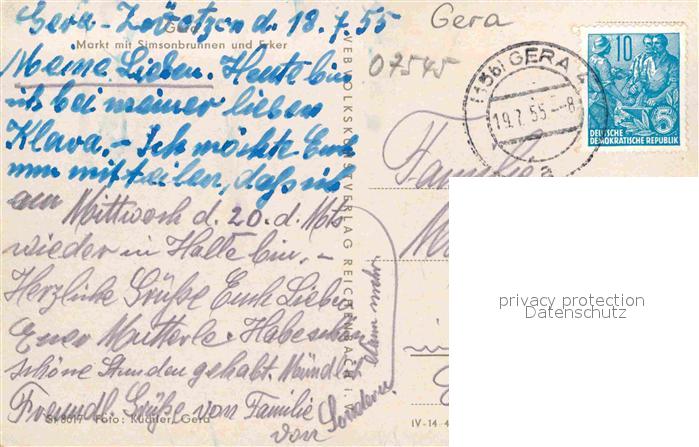 Gera - Zwötzen d. 18.7.55
Gera
Markt mit Simsonbrunnen und Erker
Meine Lieben. Heute bin
ich bei meiner lieben
Klara. - Ich möchte Euch
nun mitteilen, daß ich
am Mittwoch d. 20. d. Mts
wieder in Halle bin. -
Herzliche Grüße Euch Lieben
Euer Mutterle. Habe schon
schöne Stunden gehabt. Mündlich mehr
Freundl. Grüße von Familie
von
St 8017 Foto: Gera
VEB VOLKSKUNSTVERLAG REICHENBACH I. V.
Gera
07545
GERA
19.7.55 -8
a
10
5
DEUTSCHE
DEMOKRATISCHE REPUBLIK
Familie
in
IV-14-4
privacy protection
Datenschutz